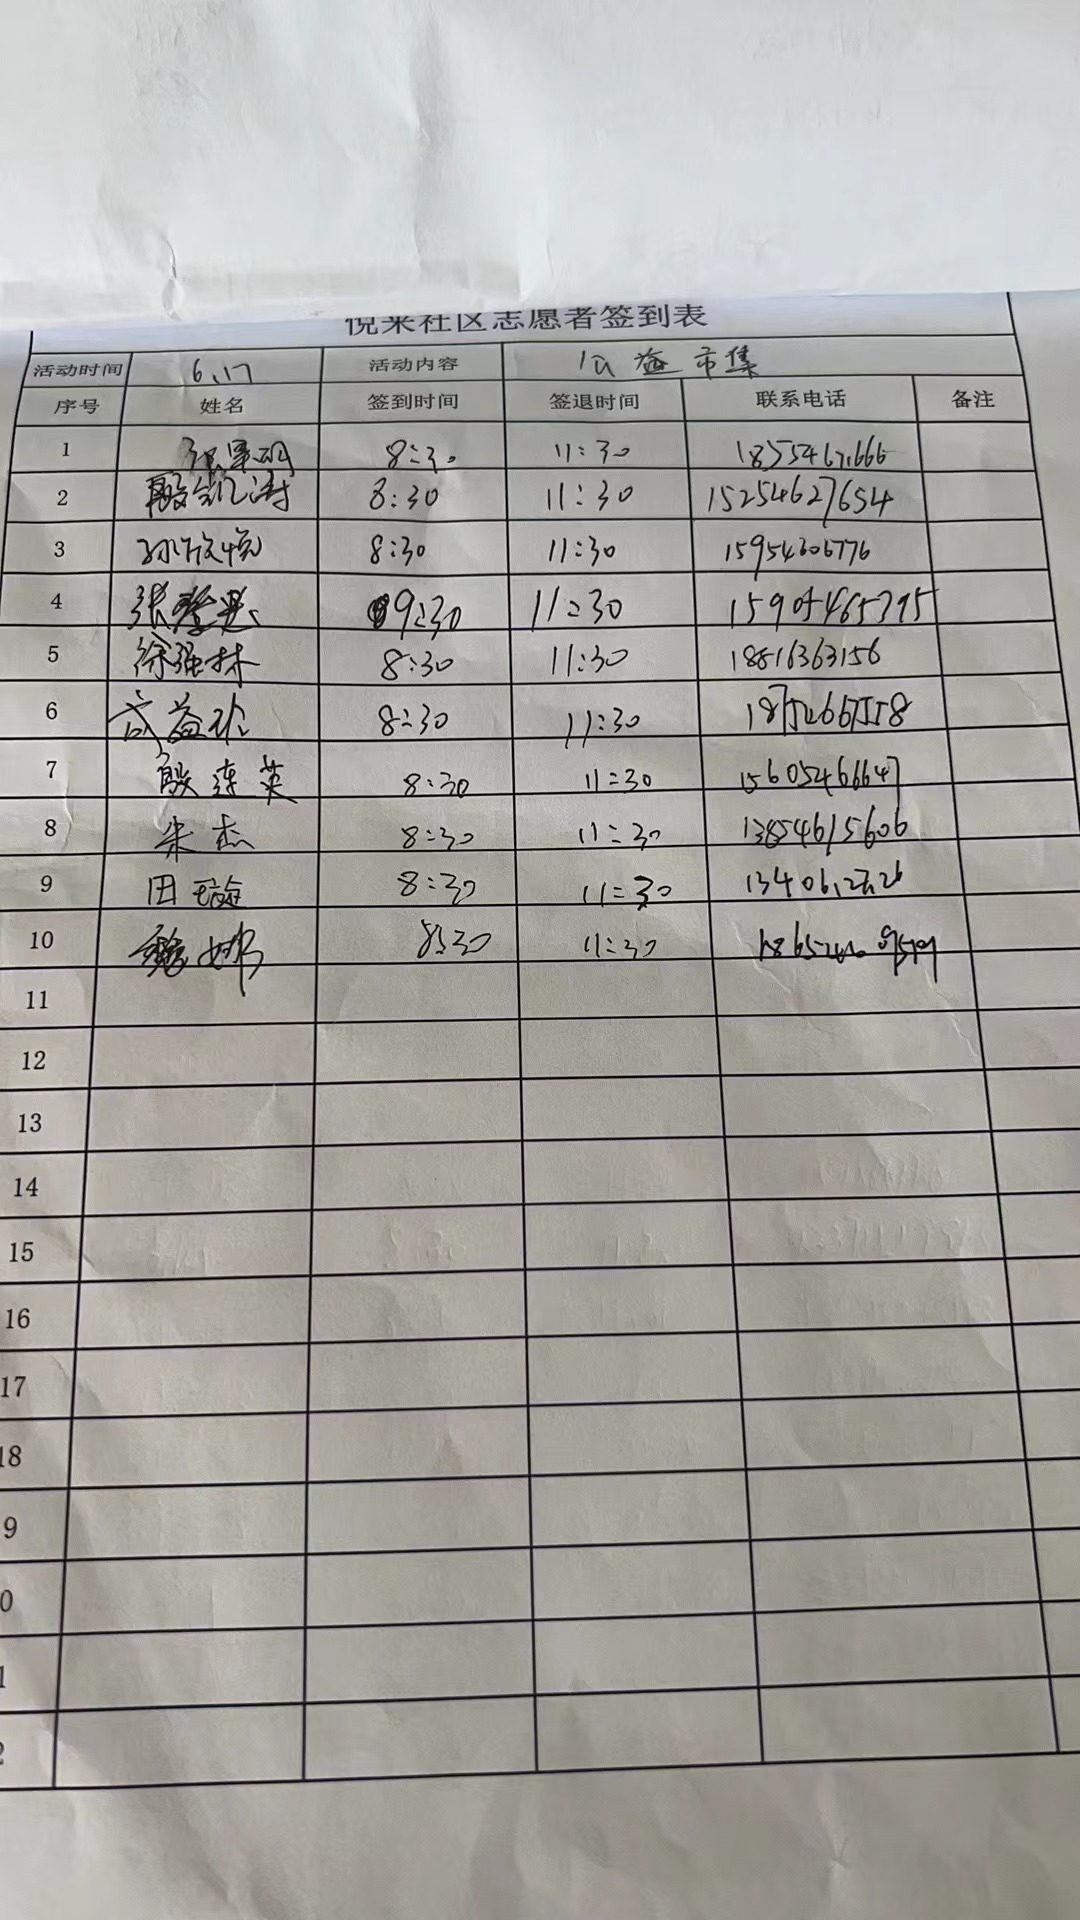 悦来社区志愿者签到表
活动时间 6.17 活动内容 公益市集
序号 姓名 签到时间 签退时间 联系电话 备注
1 8:30 11:30
2 殷凯涛 8:30 11:30 15254627654
3 孙欣悦 8:30 11:30 15954606776
4 张 9:30 11:30 15905465795
5 徐强林 8:30 11:30 18816363156
6 8:30 11:30
7 殷连英 8:30 11:30 15605466647
8 朱杰 8:30 11:30 13854615606
9 田璇 8:30 11:30
10 魏娜 8:30 11:30
11
12
13
14
15
16
17
18
9
0
1
2